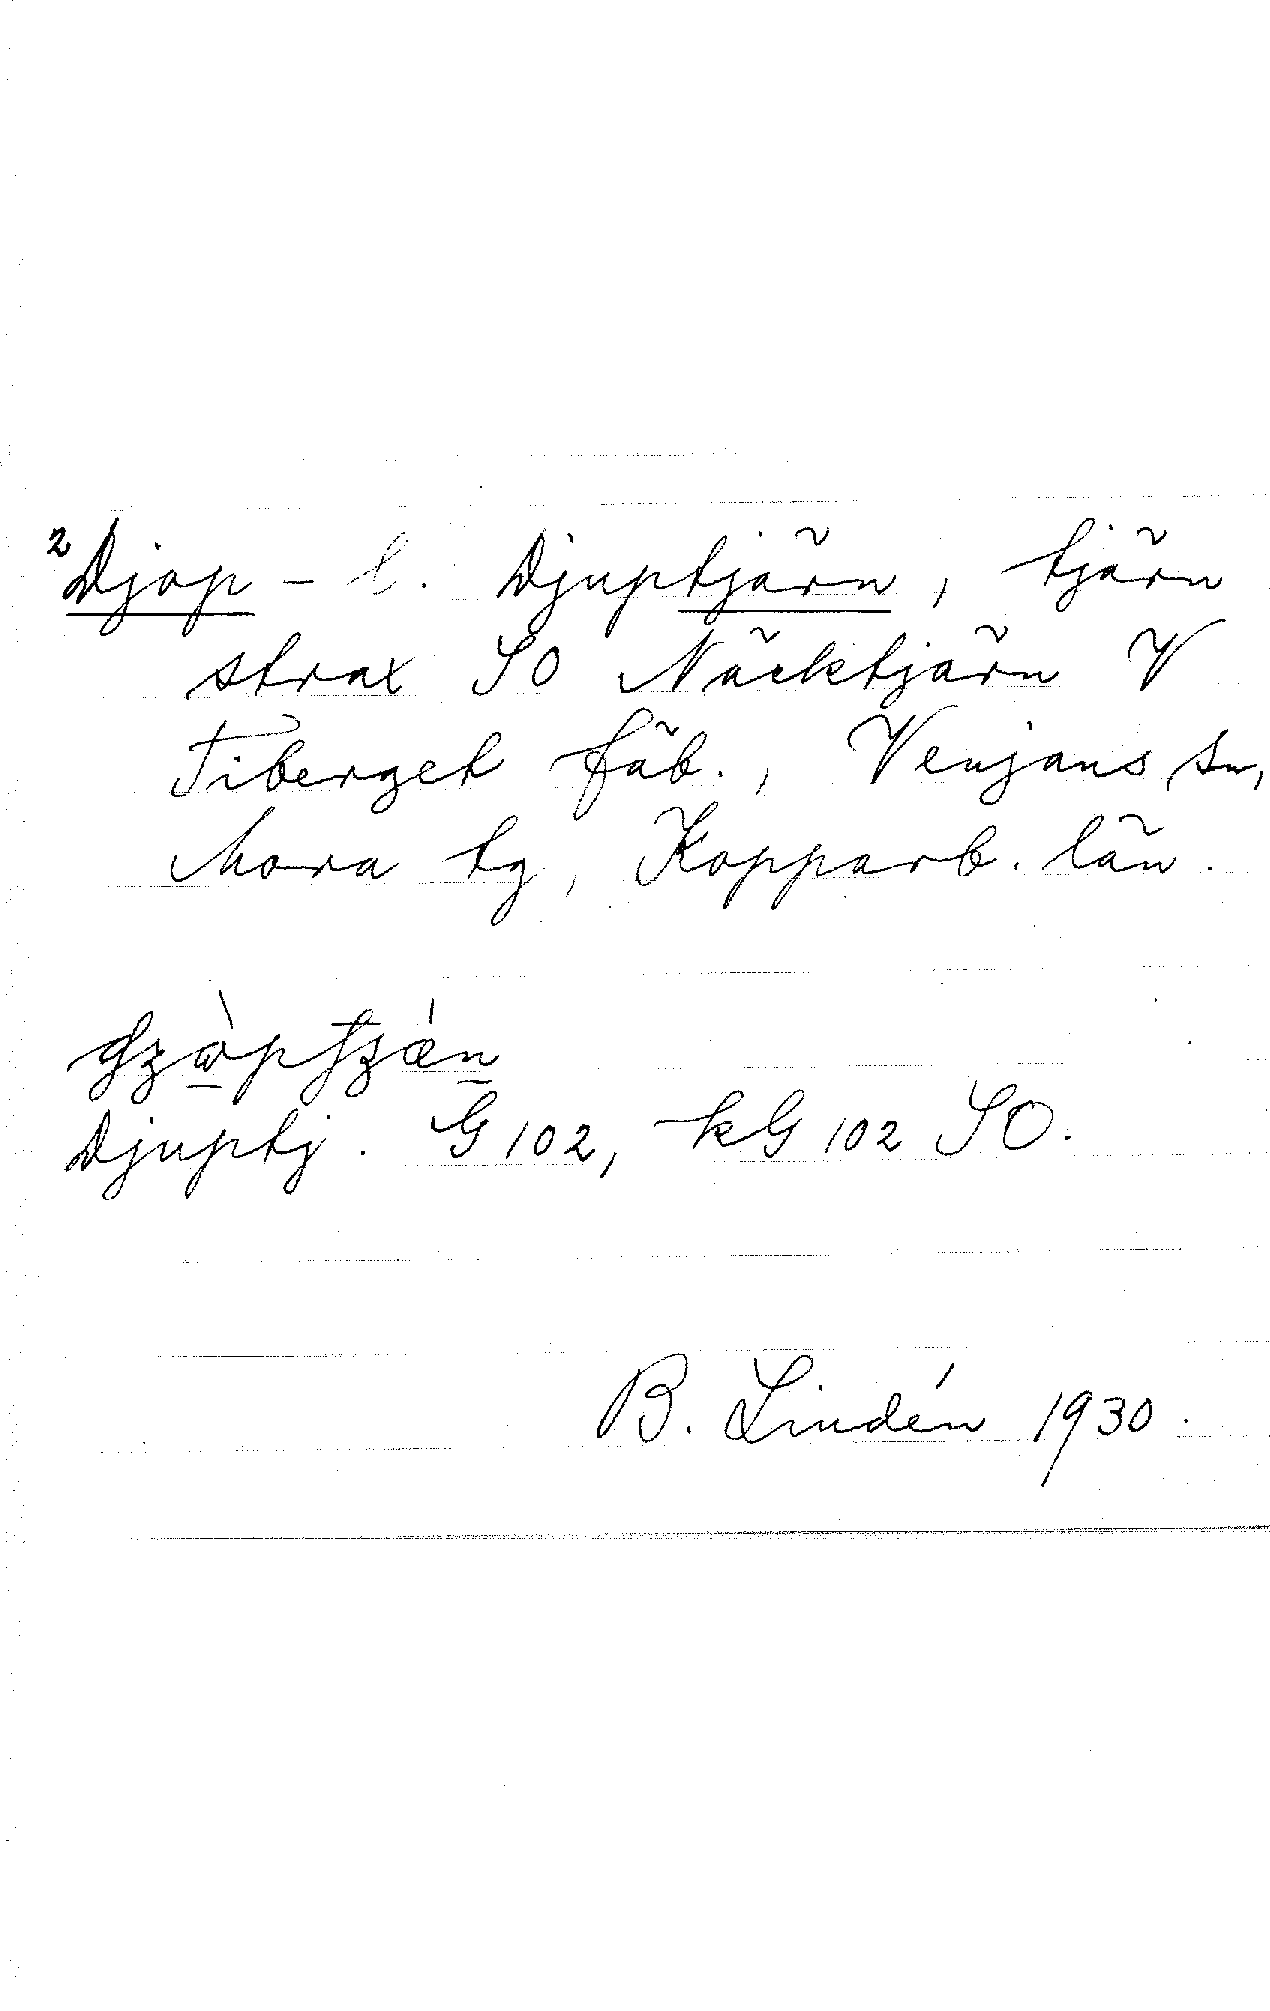 ²Djop- l. Djuptjärn, tjärn
strax SO Näcktjärn V
Tiberget fäb., Venjans sn,
Mora tg, Kopparb. län.
Djuptj. G 102, kG 102 SO.
B. Lindén 1930.